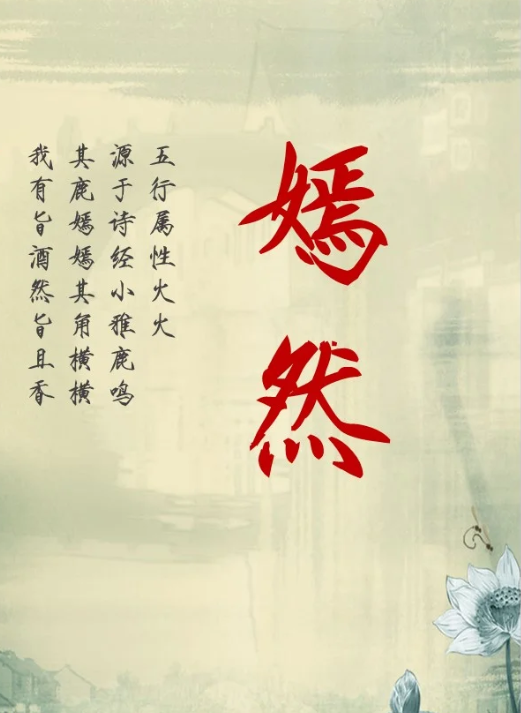 嫣然
五行属性火火
源于诗经小雅鹿鸣
其鹿嫣嫣其角横横
我有旨酒然旨且香